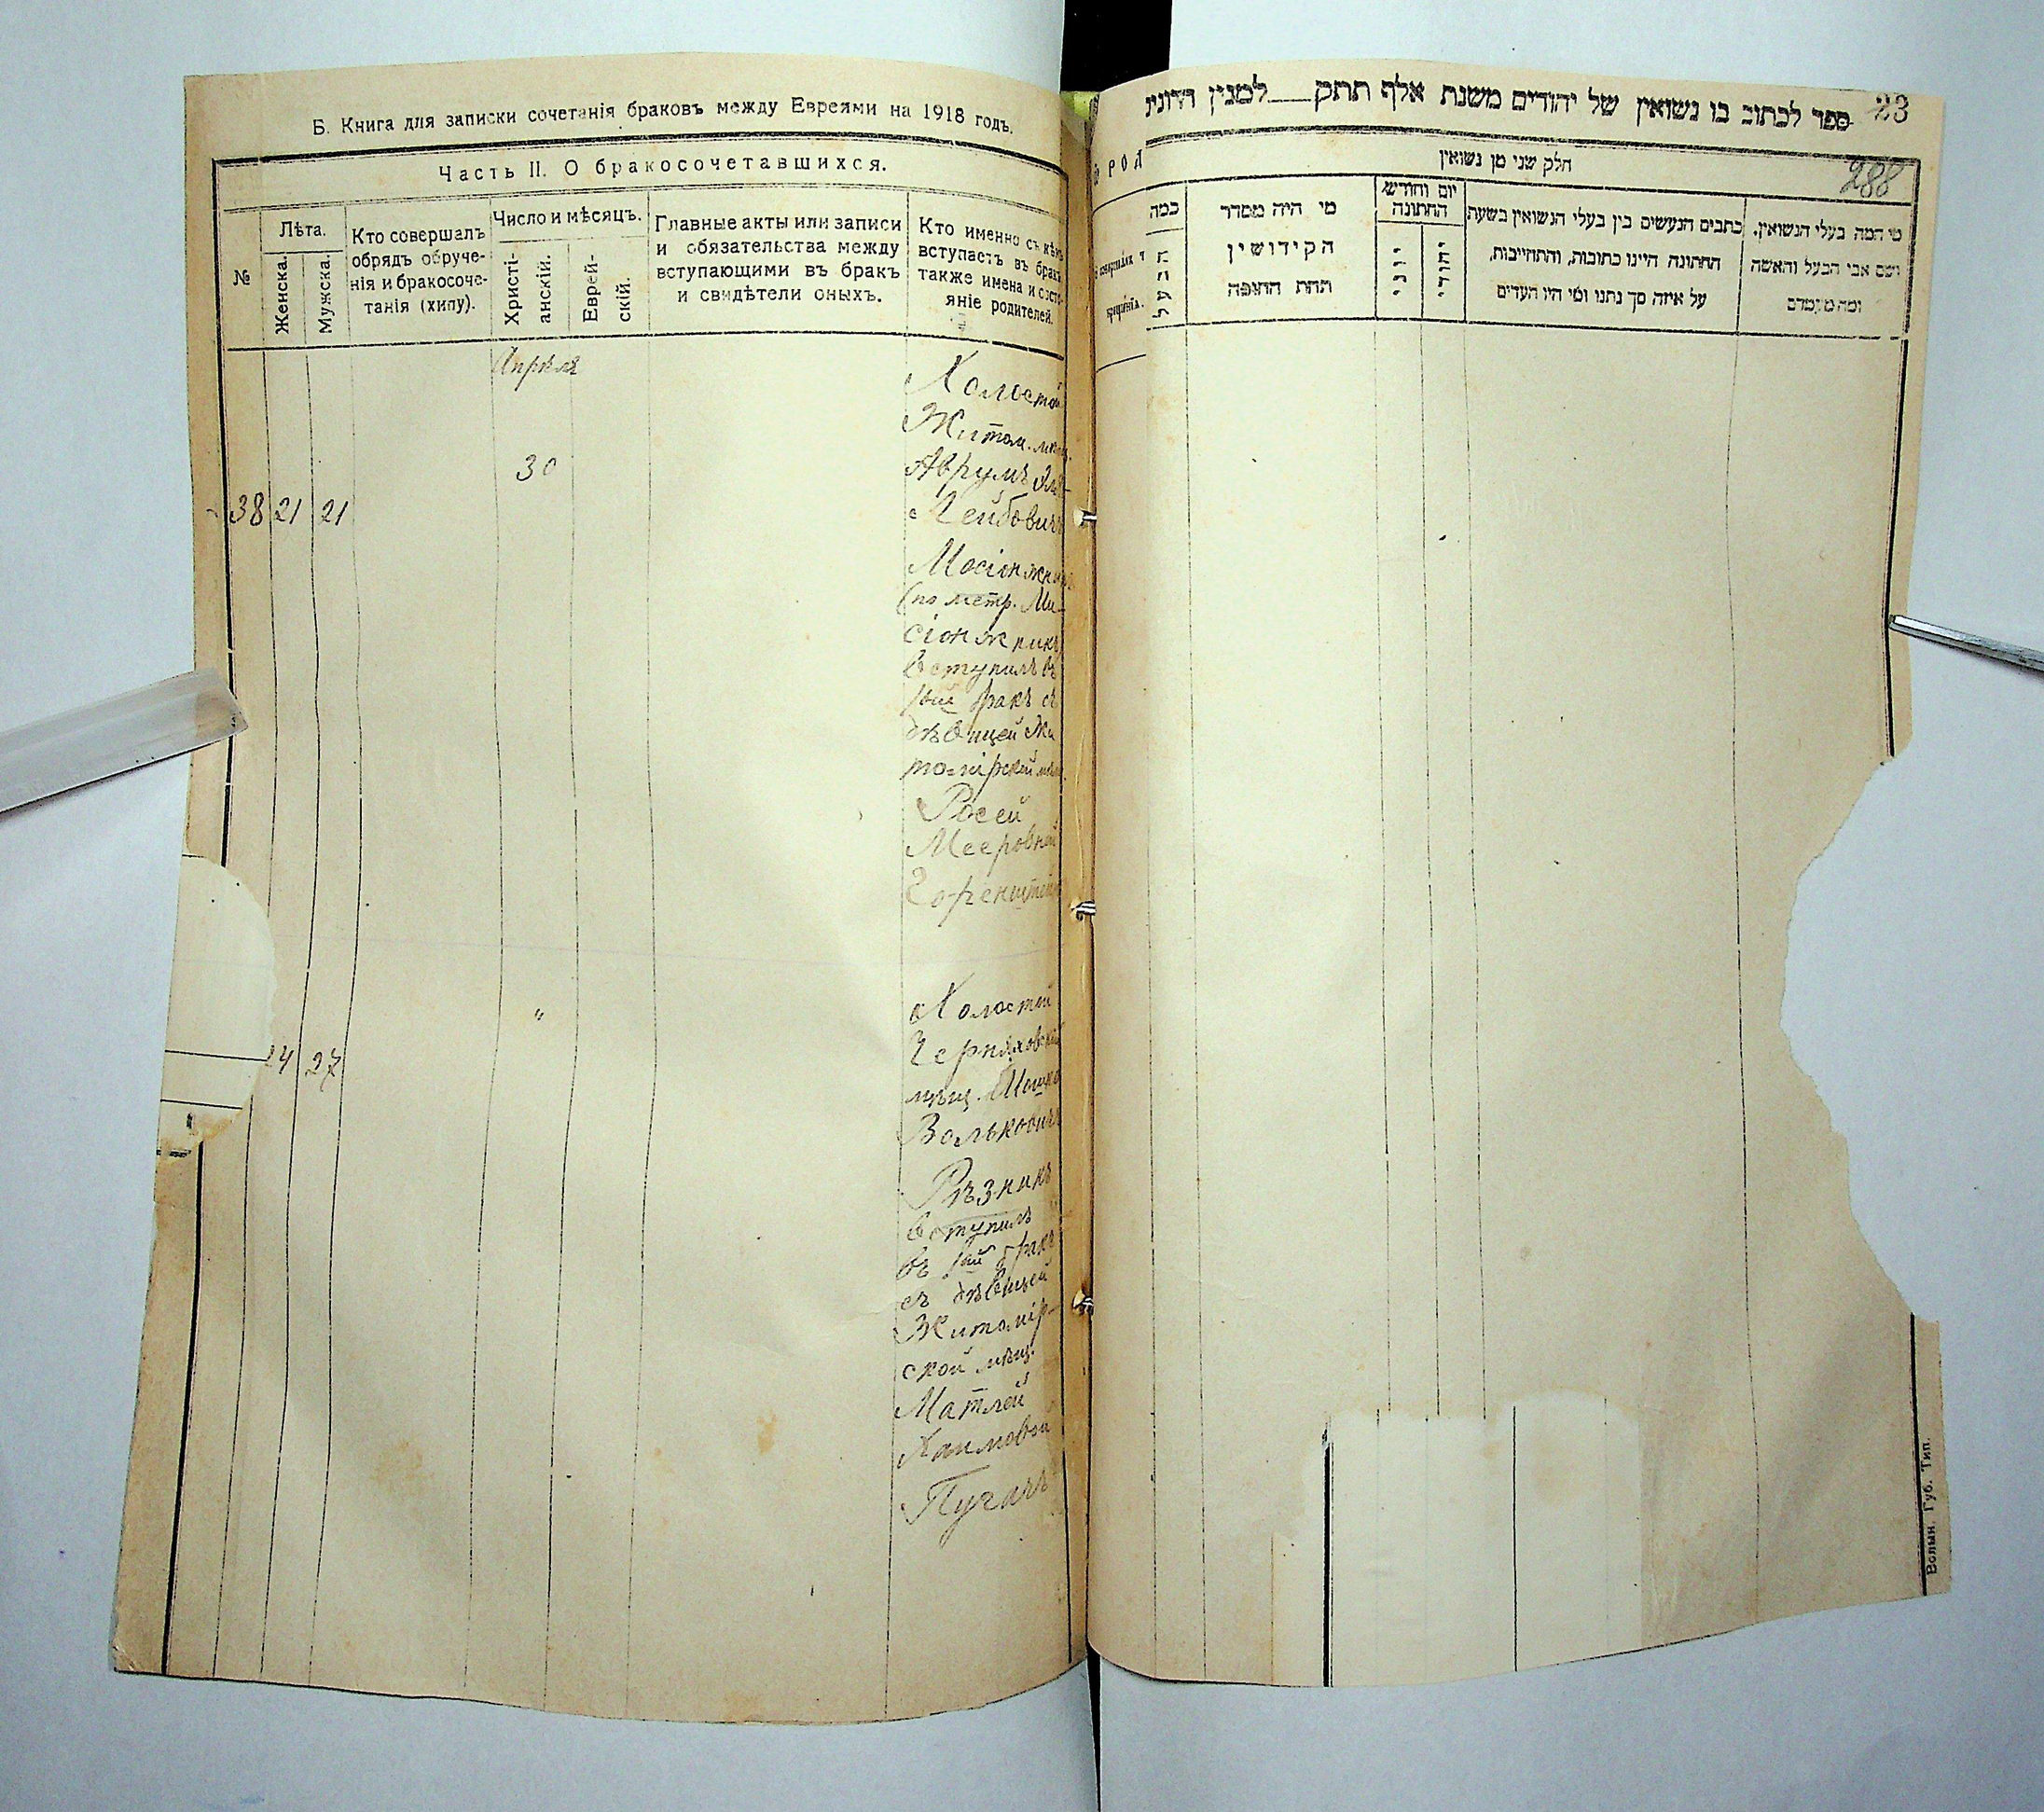 Б. Книга для записки сочетанія браковъ между Евреями на 1918 годъ.
Часть II. О бракосочетавшихся.
№
Лѣта.
Женска.
Мужска.
Кто совершалъ
обрядъ обруче-
нія и бракосоче-
танія (хипу).
Число и мѣсяцъ.
Христі-
анскій.
Еврей-
скій.
Главные акты или записи
и обязательства между
вступающими въ бракъ
и свидѣтели оныхъ.
Кто именно съ кѣмъ
вступаетъ въ бракъ
также имена и состо-
яніе родителей.
Апрѣля
30
38 21 21
Холостой
Житом. мѣщ.
Аврумъ
Лейбовичъ
Мосіонжникъ
(по метр. Ми-
сіонжникъ)
вступилъ въ
1ый бракъ съ
дѣвицей Жи
томірской мѣщ.
Росей
Мееровной
Горенштейнъ
"
24 27
Холостой
Черняховскій
мѣщ. Мошко
Вольковичъ
Рѣзникъ
вступилъ
въ 1ый бракъ
съ дѣвицей
Житомір-
ской мѣщ.
Матлей
Хаимовой
Пугачъ
ספר לכתוב בו נשואין של יהודים משנת אלף תתק___למנין
23
288
РОД
חלק שני מן נשואין
כמה
הבעל
מי היה מסדר
הקידושין
תחת החופה
יום וחודש
החתונה
יוני
יהודי
כתבים הנעשים בין בעלי הנשואין בשעת
החתונה היינו כתובות, והתחייבות,
על איזה סך נתנו ומי היו העדים
מי המה בעלי הנשואין,
ושם אבי הבעל והאשה
ומה מעמדם
Волын. Губ. Тип.